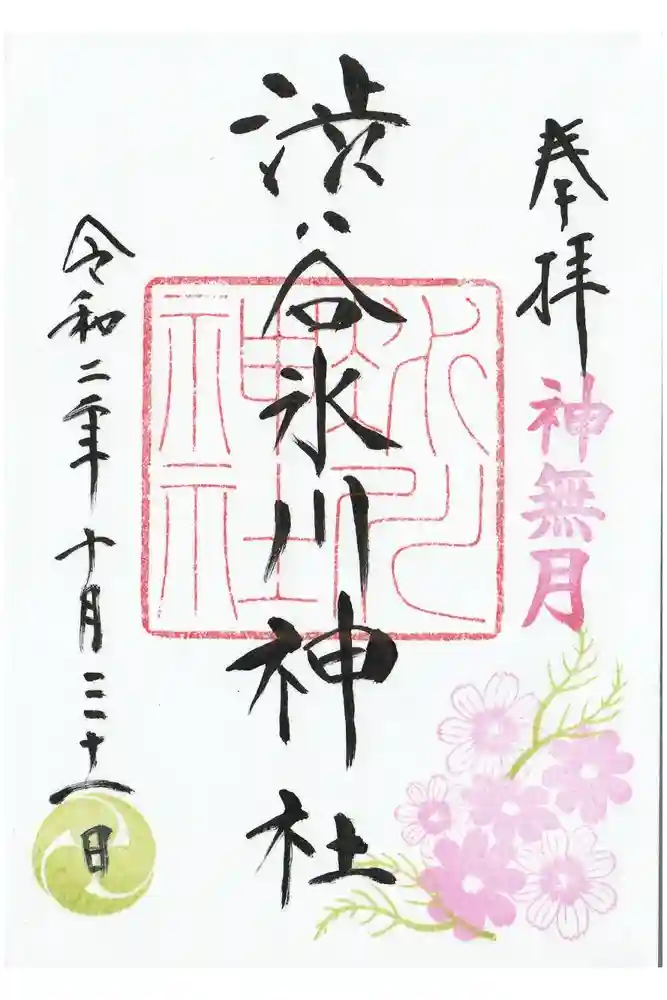 奉拝
神無月
渋谷氷川神社
氷川神社
令和二年十月三十一日